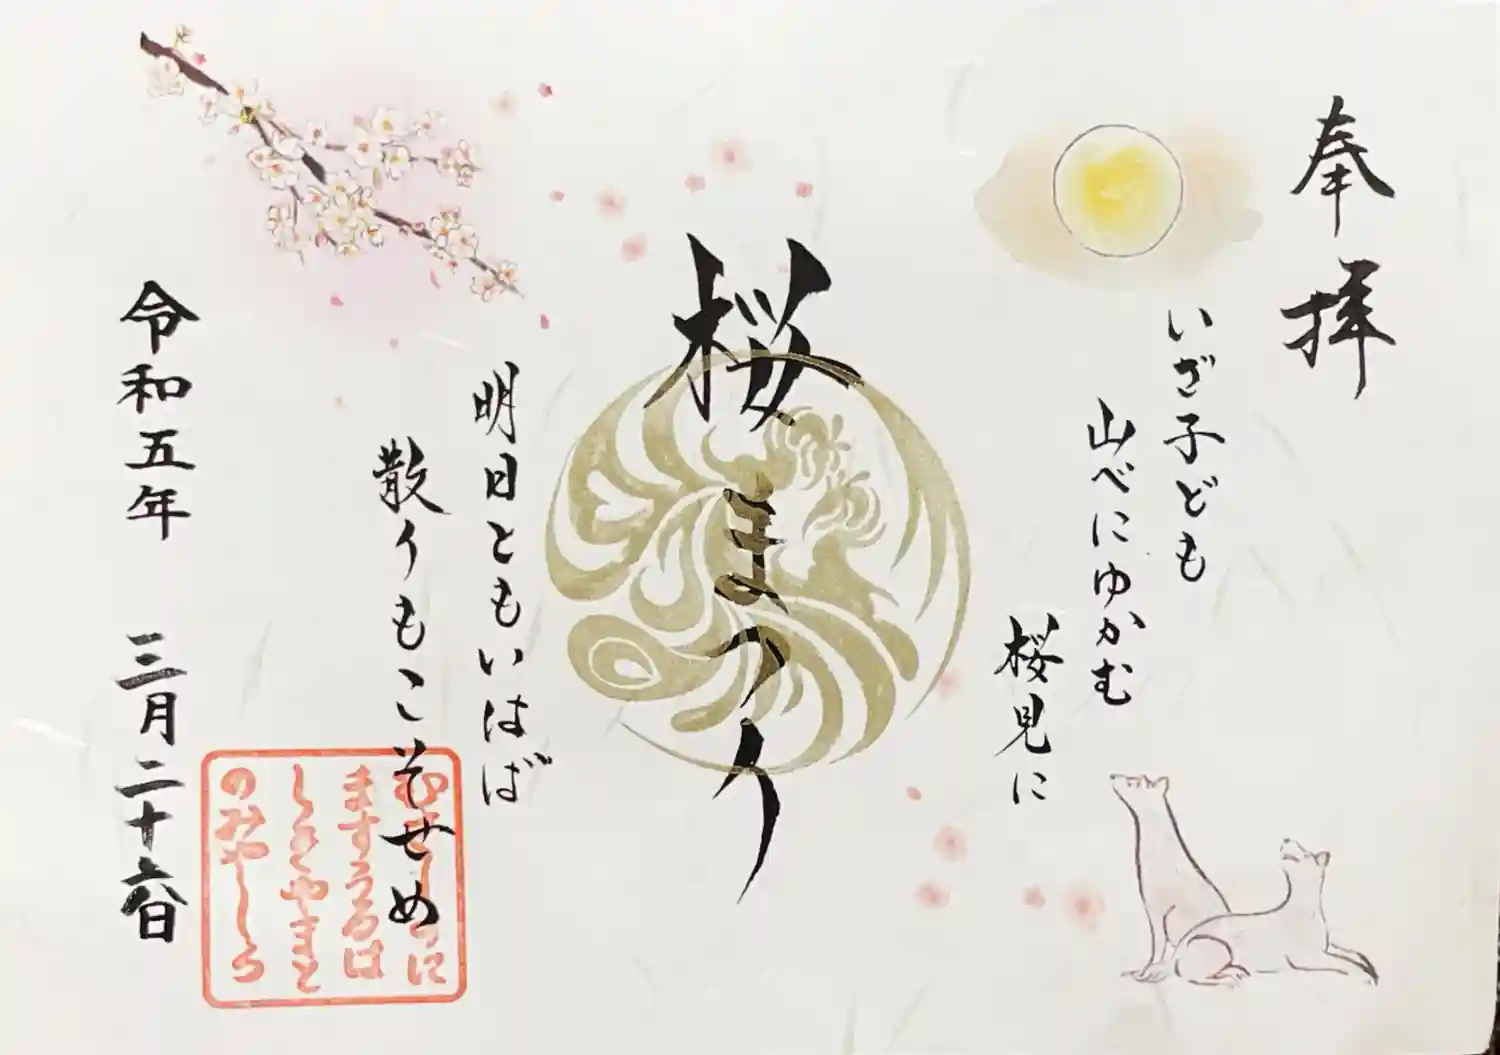 奉拝
いざ子ども
山べにゆかむ
桜見に
桜まつり
明日ともいはば
散りもこそせめ
令和五年 三月二十六日
ますうるは
しきやまと
のみやしろ